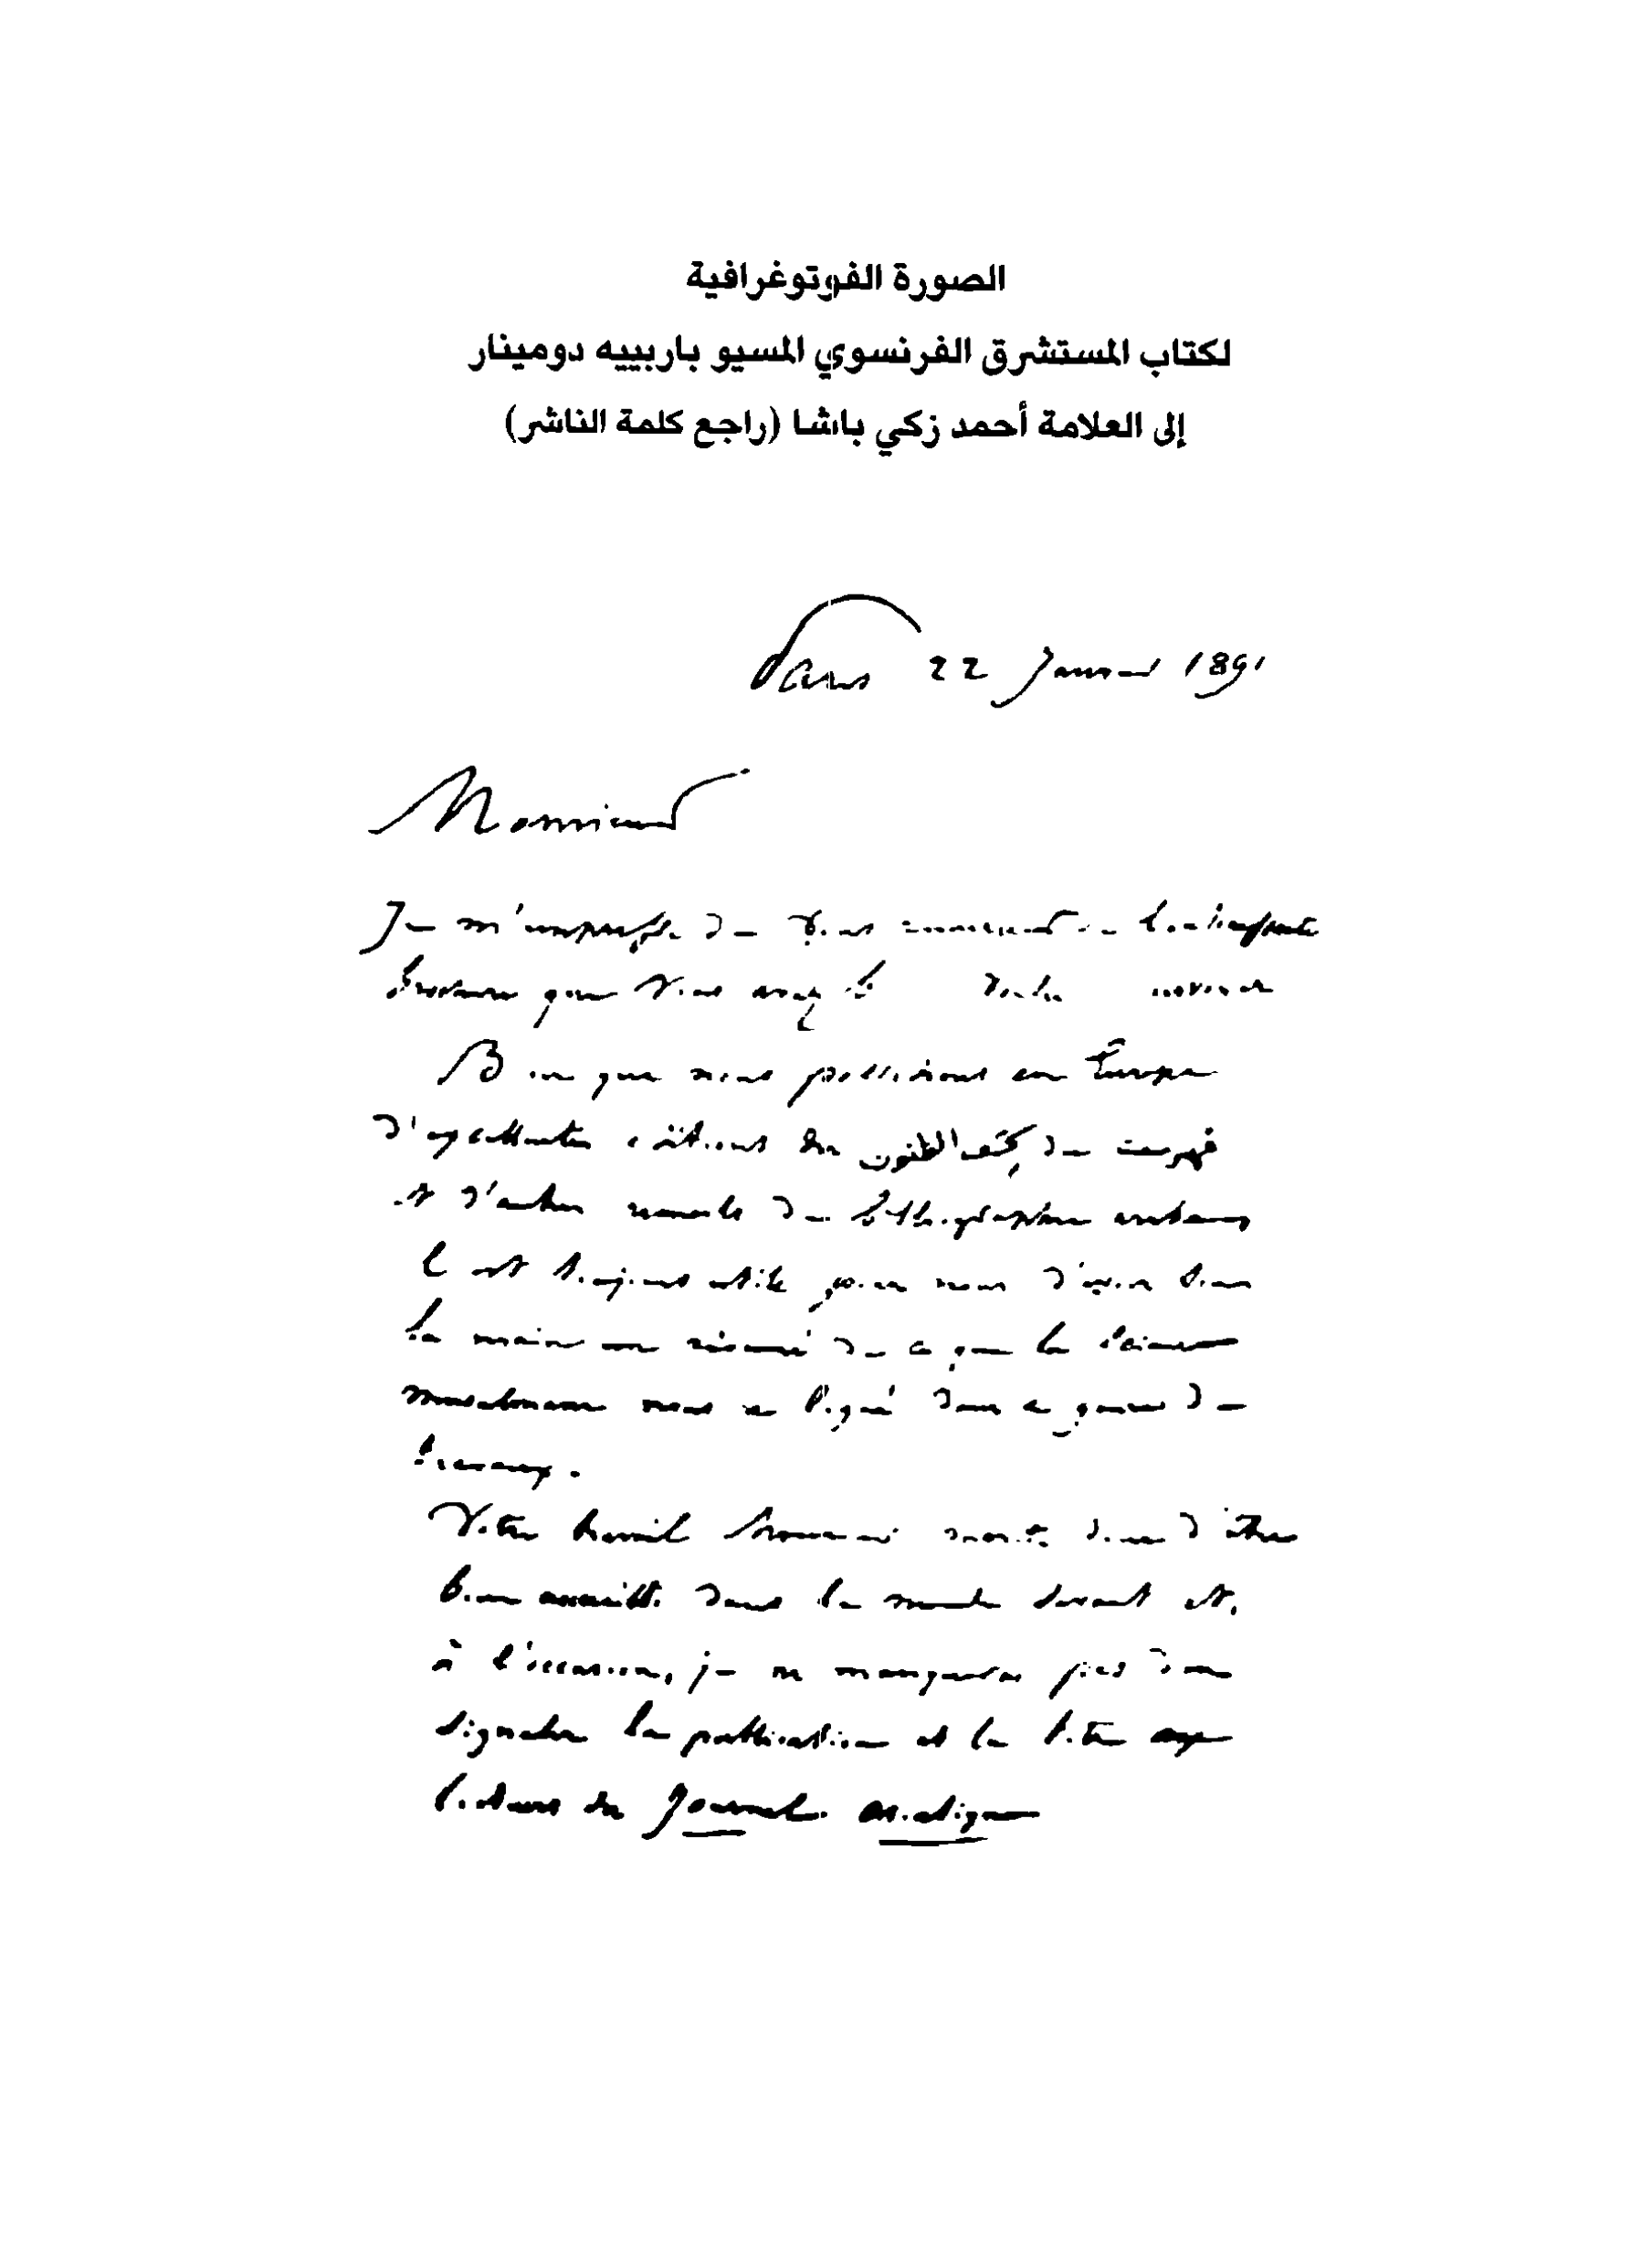 الصورة الفوتوغرافية
لكتاب المستشرق الفرنسوي المسيو باربييه دومينار
إلى العلامة أحمد زكي باشا (راجع كلمة الناشر)
Paris 22 Janvier 1891
Monsieur
Je m'empresse de vous remercier de l'intéressante
brochure que vous avez
Bien que nous possédions en Europe
d'excellentes éditions du فهرست de كشف الظنون
et d'autres recueils de bibliographie
il est toujours utile pour nous d'avoir sous
la main un résumé de ce que la science
musulmane nous a légué dans ce genre de
travaux.
Votre travail mérite donc d'être
bien accueilli dans le monde savant et,
à l'occasion, je ne manquerai pas d'en
signaler la publication et le titre aux
lecteurs du Journal asiatique